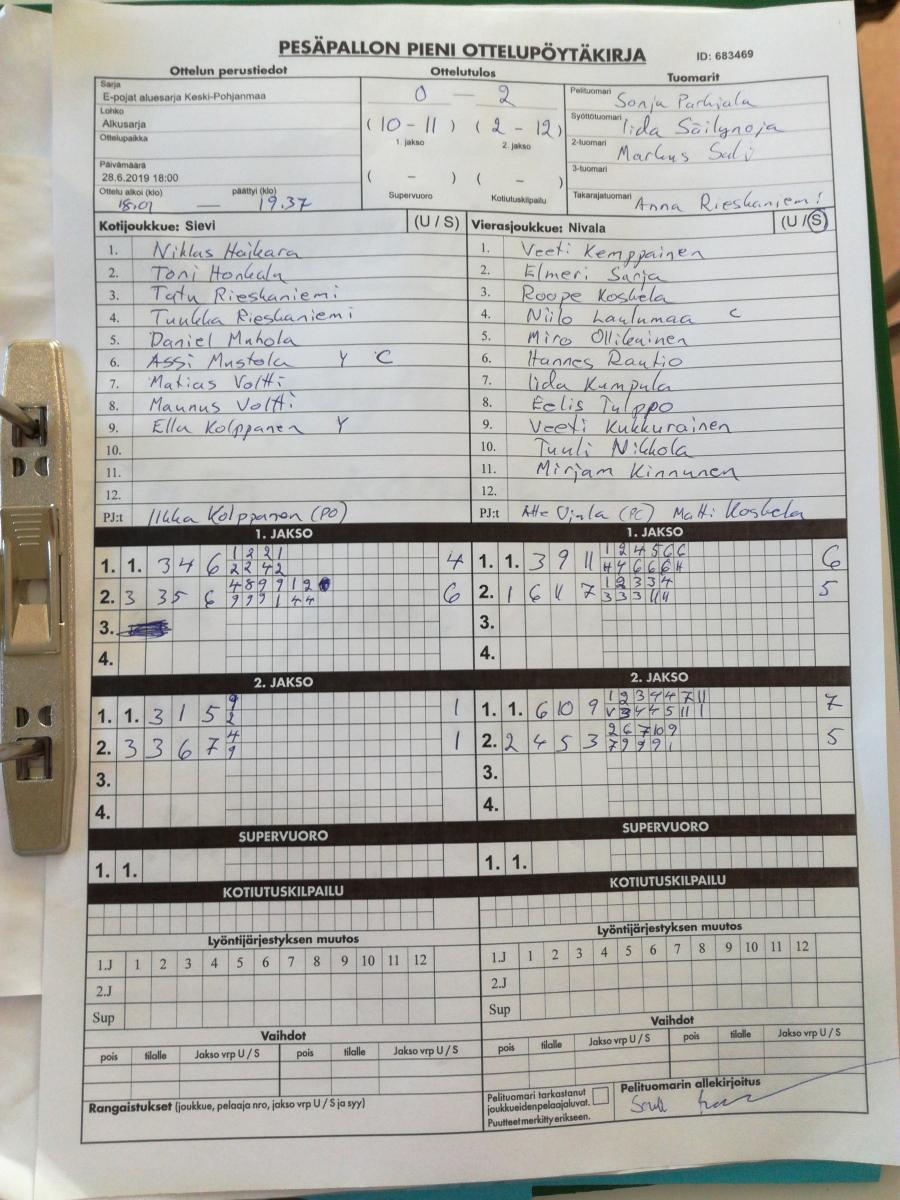 PESÄPALLON PIENI OTTELUPÖYTÄKIRJA
ID: 683469
Ottelun perustiedot
Sarja
E-pojat aluesarja Keski-Pohjanmaa
Lohko
Alkusarja
Ottelupaikka
Päivämäärä
28.6.2019 18:00
Ottelu alkoi (klo) päättyi (klo)
18.01 — 19.37
Ottelutulos
0 — 2
(10 - 11) (2 - 12)
1. jakso 2. jakso
( - ) ( - )
Supervuoro Kotiutuskilpailu
Tuomarit
Pelituomari Sonja Parhiala
Syöttötuomari Iida Säilynoja
2-tuomari Markus Salj
3-tuomari
Takarajatuomari Anna Rieskaniemi
Kotijoukkue: Sievi (U / S)
1. Niklas Haikara
2. Toni Honkala
3. Tatu Rieskaniemi
4. Tuukka Rieskaniemi
5. Daniel Muhola
6. Assi Mustola Y C
7. Matias Voltti
8. Maunus Voltti
9. Ella Kolppanen Y
10.
11.
12.
PJ:t Ilkka Kolppanen (PO)
Vierasjoukkue: Nivala (U / S)
1. Veeti Kemppainen
2. Elmeri Sarja
3. Roope Koskela
4. Niilo Laulumaa C
5. Miro Ollikainen
6. Hannes Rautio
7. Iida Kumpula
8. Eelis Tulppo
9. Veeti Kukkurainen
10. Tuuli Nikkola
11. Mirjam Kinnunen
12.
PJ:t Atte Matti Koskela
1. JAKSO
1. 1. 3 4 6 1 2 2 1 4
2 2 4 2
2. 3 3 5 6 4 8 9 9 1 2 6
9 9 9 1 4 4
3.
4.
1. JAKSO
1. 1. 3 9 11 1 2 4 5 6 6 6
4 4 6 6 6 11
2. 1 6 11 7 1 2 3 3 4 5
3 3 3 11 11
3.
4.
2. JAKSO
1. 1. 3 1 5 9 1
2
2. 3 3 6 7 4 1
9
3.
4.
2. JAKSO
1. 1. 6 10 9 1 2 3 4 4 7 11 7
3 4 4 5 11 1
2. 2 4 5 3 2 6 7 10 9 5
7 9 9 9 1
3.
4.
SUPERVUORO
1. 1.
SUPERVUORO
1. 1.
KOTIUTUSKILPAILU
KOTIUTUSKILPAILU
Lyöntijärjestyksen muutos
1.J 1 2 3 4 5 6 7 8 9 10 11 12
2.J
Sup
Lyöntijärjestyksen muutos
1.J 1 2 3 4 5 6 7 8 9 10 11 12
2.J
Sup
Vaihdot
pois tilalle Jakso vrp U / S pois tilalle Jakso vrp U / S
Vaihdot
pois tilalle Jakso vrp U / S pois tilalle Jakso vrp U / S
Rangaistukset (joukkue, pelaaja nro, jakso vrp U / S ja syy)
Pelituomari tarkastanut
joukkueidenpelaajaluvat.
Puutteet merkitty erikseen.
Pelituomarin allekirjoitus